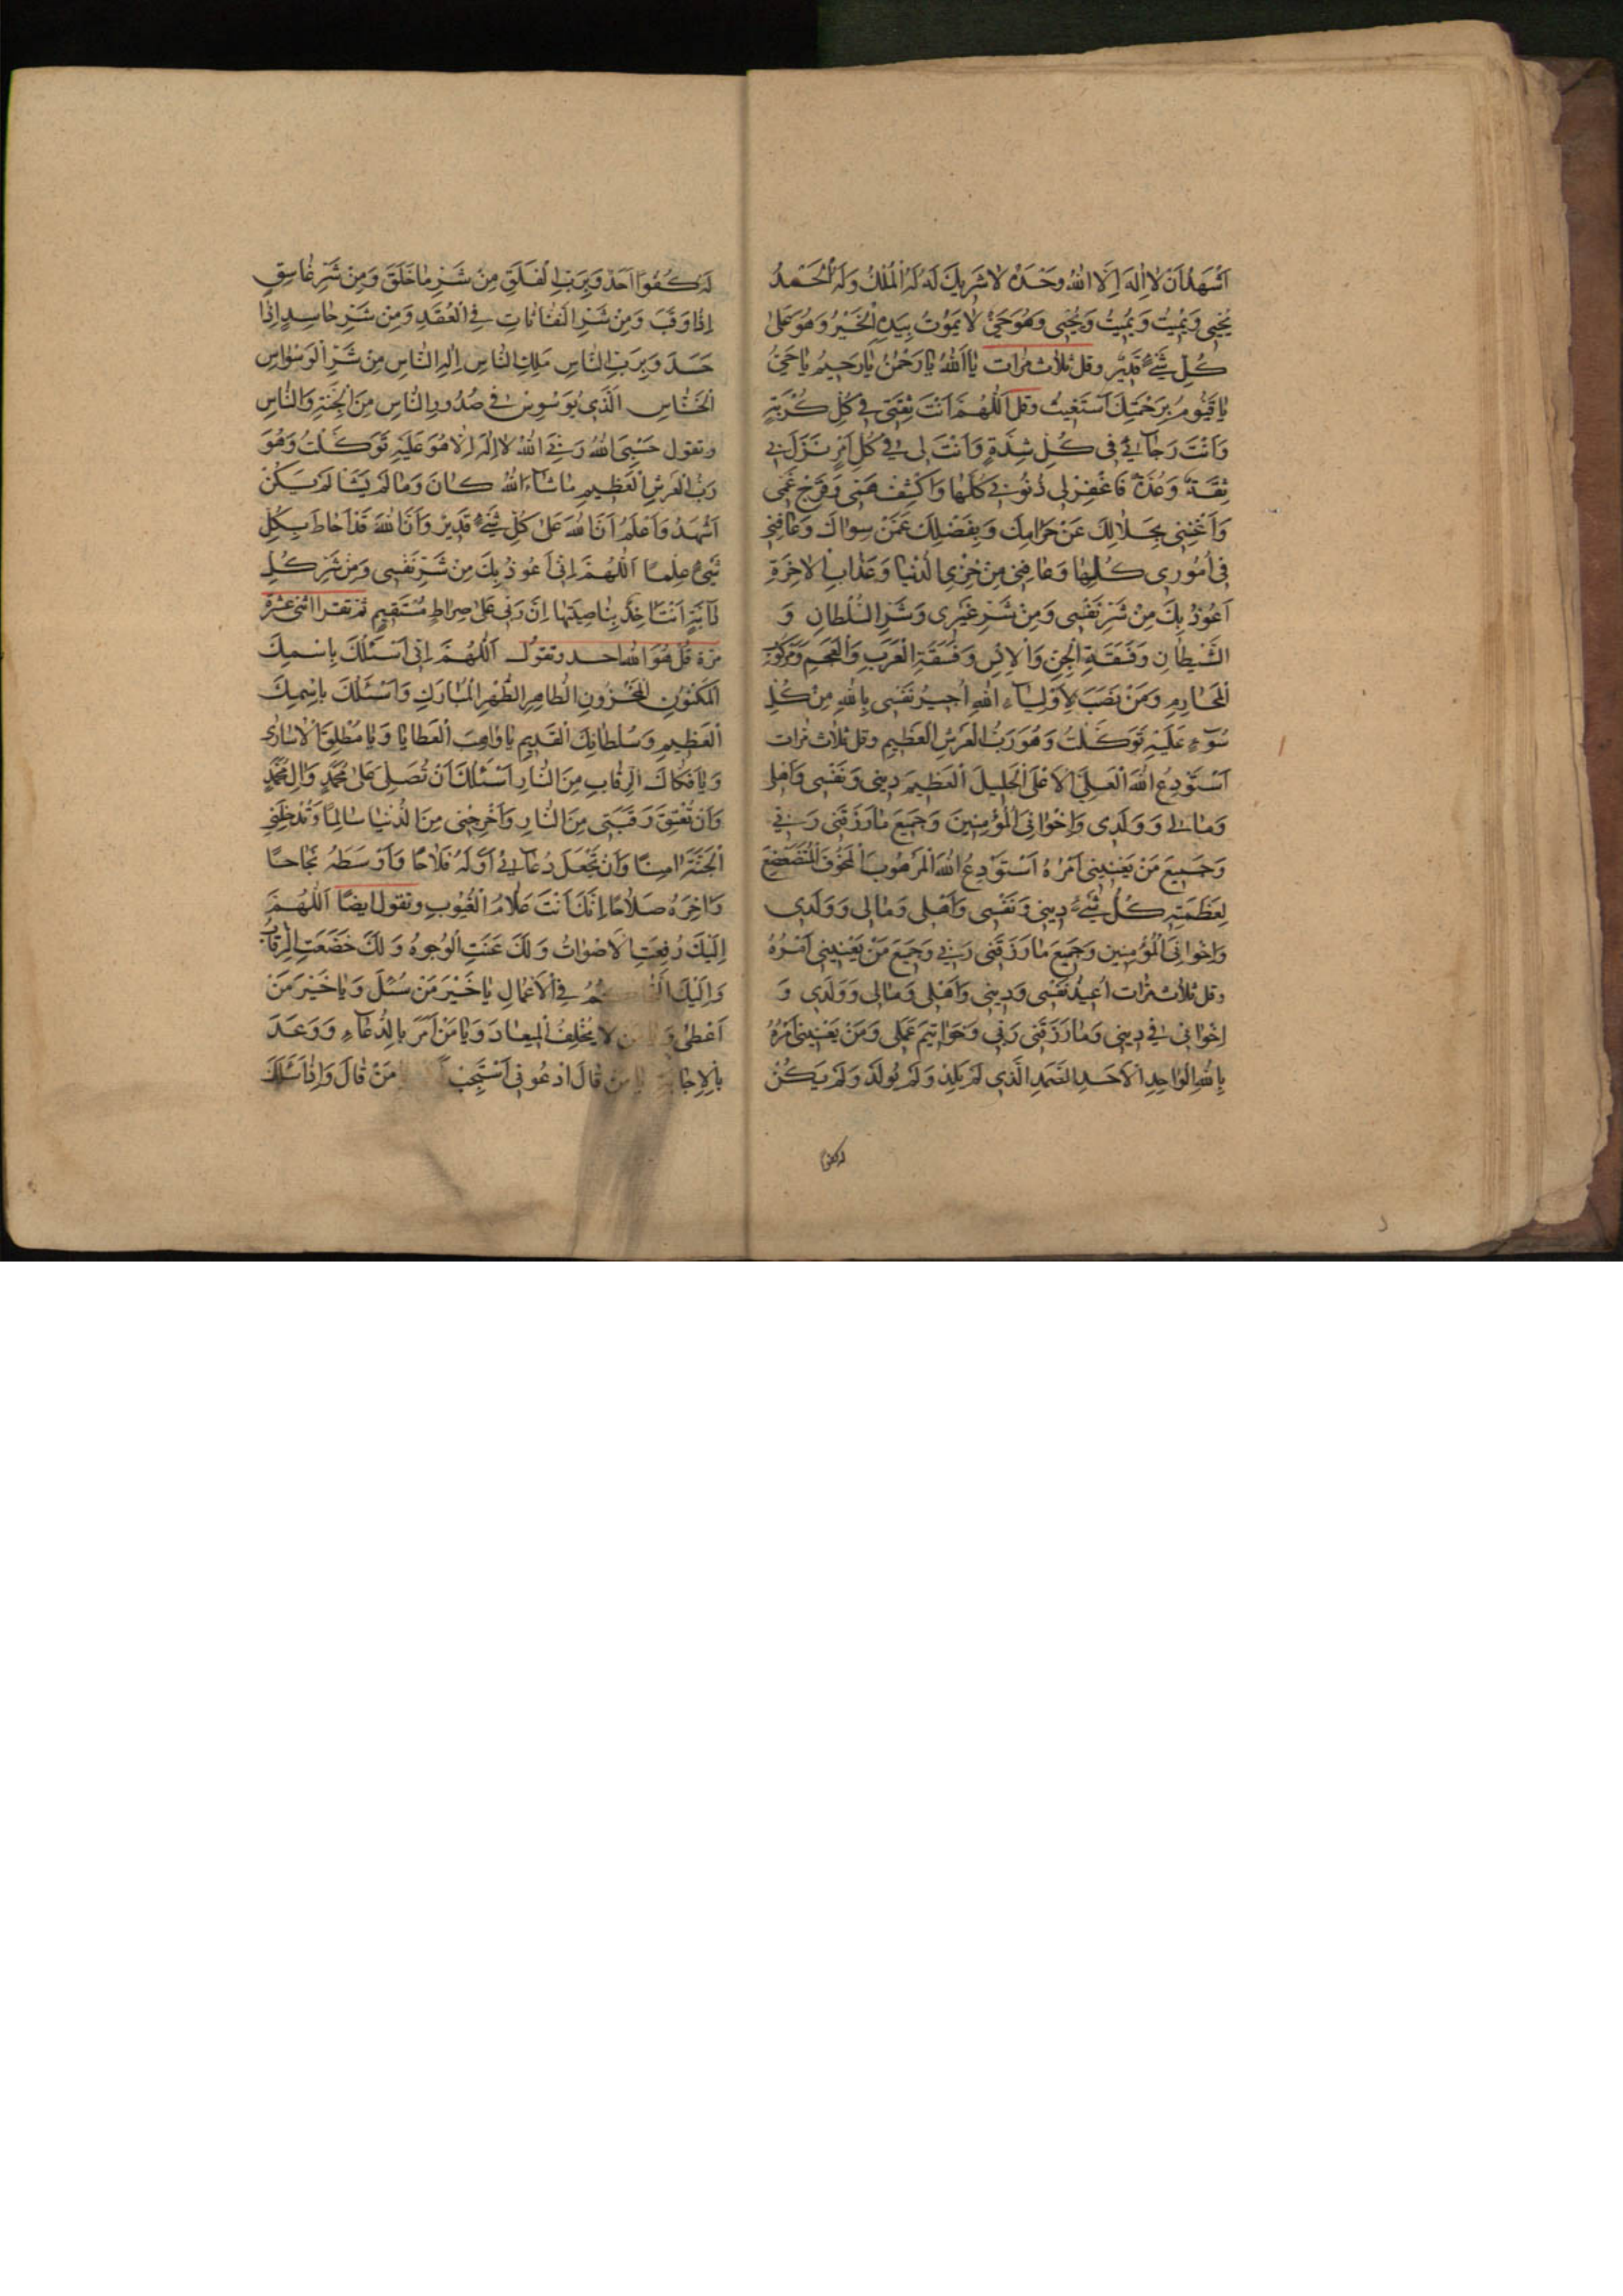 اَشْهَدُ اَنْ لا اِلهَ اِلَّا اللهُ وَحْدَهُ لا شَرِيكَ لَهُ لَهُ الْمُلْكُ وَلَهُ الْحَمْدُ
يُحْيِى وَيُمِيتُ وَيُمِيتُ وَيُحْيِى وَهُوَ حَىٌّ لا يَمُوتُ بِيَدِهِ الْخَيْرُ وَهُوَ عَلى
كُلِّ شَىْءٍ قَدِيرٌ وقل ثلاث مرات يا اَللهُ يا رَحْمنُ يا رَحِيمُ يا حَىُّ
يا قَيُّومُ بِرَحْمَتِكَ اَسْتَغِيثُ وقل اَللّهُمَّ اَنْتَ ثِقَتِى فِى كُلِّ كُرْبَةٍ
وَاَنْتَ رَجآئِى فِى كُلِّ شِدَّةٍ وَاَنْتَ لِى فِى كُلِّ اَمْرٍ نَزَلَ بِى
ثِقَةٌ وَعُدَّةٌ فَاغْفِرْ لِى ذُنُوبِى كُلَّها وَاكْشِفْ هَمِّى وَفَرِّجْ غَمِّى
وَاَغْنِنِى بِحَلالِكَ عَنْ حَرامِكَ وَبِفَضْلِكَ عَمَّنْ سِواكَ وَعافِنِى
فِى اُمُورِى كُلِّها وَعافِنِى مِنْ خِزْىِ الدُّنْيا وَعَذابِ الاخِرَةِ
اَعُوذُ بِكَ مِنْ شَرِّ نَفْسِى وَمِنْ شَرِّ غَيْرِى وَشَرِّ السُّلْطانِ وَ
الشَّيْطانِ وَفَسَقَةِ الْجِنِّ وَالْاِنْسِ وَفَسَقَةِ الْعَرَبِ وَالْعَجَمِ وَرُكُوبِ
الْمَحارِمِ وَمَنْ نَصَبَ لِاَوْلِيآءِ اللهِ اُجِيرُ نَفْسِى بِاللهِ مِنْ كُلِّ
سُوٓءٍ عَلَيْهِ تَوَكَّلْتُ وَهُوَ رَبُّ الْعَرْشِ الْعَظِيمِ وقل ثلاث مرات
اَسْتَوْدِعُ اللهَ الْعَلِىَّ الْاَعْلَى الْجَلِيلَ الْعَظِيمَ دِينِى وَنَفْسِى وَاَهْلِى
وَمالِى وَوَلَدِى وَاِخْوانِىَ الْمُؤْمِنِينَ وَجَمِيعَ ما رَزَقَنِى رَبِّى
وَجَمِيعَ مَنْ يَعْنِينِى اَمْرُهُ اَسْتَوْدِعُ اللهَ الْمَرْهُوبَ الْمَخُوفَ الْمُتَضَعْضِعَ
لِعَظَمَتِهِ كُلُّ شَىْءٍ دِينِى وَنَفْسِى وَاَهْلِى وَمالِى وَوَلَدِى
وَاِخْوانِىَ الْمُؤْمِنِين وَجَمِيعَ ما رَزَقَنِى رَبِّى وَجَمِيعَ مَنْ يَعْنِينِى اَمْرُهُ
وقل ثلاث مرات اُعِيذُ نَفْسِى وَدِينِى وَاَهْلِى وَمالِى وَوَلَدِى وَ
اِخْوانِى فِى دِينِى وَما رَزَقَنِى رَبِّى وَخَواتِيمَ عَمَلِى وَمَنْ يَعْنِينِى اَمْرُهُ
بِاللهِ الْواحِدِ الْاَحَدِ الصَّمَدِ الَّذِى لَمْ يَلِدْ وَلَمْ يُولَدْ وَلَمْ يَكُنْ
له كفوا
لَهُ كُفُوًا اَحَدٌ وَبِرَبِّ الْفَلَقِ مِنْ شَرِّ ما خَلَقَ وَمِنْ شَرِّ غاسِقٍ
اِذا وَقَبَ وَمِنْ شَرِّ النَّفّاثاتِ فِى الْعُقَدِ وَمِنْ شَرِّ حاسِدٍ اِذا
حَسَدَ وَبِرَبِّ النّاسِ مَلِكِ النّاسِ اِلهِ النّاسِ مِنْ شَرِّ الْوَسْواسِ
الْخَنّاسِ الَّذِى يُوَسْوِسُ فِى صُدُورِ النّاسِ مِنَ الْجِنَّةِ وَالنّاسِ
وتقول حَسْبِىَ اللهُ رَبِّىَ اللهُ لا اِلهَ اِلّا هُوَ عَلَيْهِ تَوَكَّلْتُ وَهُوَ
رَبُّ الْعَرْشِ الْعَظِيمِ ما شآءَ اللهُ كانَ وَما لَمْ يَشَأْ لَمْ يَكُنْ
اَشْهَدُ وَاَعْلَمُ اَنَّ اللهَ عَلى كُلِّ شَىْءٍ قَدِيرٌ وَاَنَّ اللهَ قَدْ اَحاطَ بِكُلِّ
شَىْءٍ عِلْمًا اَللّهُمَّ اِنِّى اَعُوذُ بِكَ مِنْ شَرِّ نَفْسِى وَمِنْ شَرِّ كُلِّ
دآبَّةٍ اَنْتَ اخِذٌ بِناصِيَتِها اِنَّ رَبِّى عَلى صِراطٍ مُسْتَقِيمٍ ثم تقرا اثنى عشرة
مرة قُلْ هُوَ الله احد وتقول اَللّهُمَّ اِنِّى اَسْئَلُكَ بِاسْمِكَ
الْمَكْنُونِ الْمَخْزُونِ الطّاهِرِ الطُّهْرِ الْمُبارَكِ وَاَسْئَلُكَ بِاسْمِكَ
الْعَظِيمِ وَسُلْطانِكَ الْقَدِيمِ يا واهِبَ الْعَطايا وَيا مُطْلِقَ الْاُسارى
وَيا فَكّاكَ الرِّقابِ مِنَ النّارِ اَسْئَلُكَ اَنْ تُصَلِّىَ عَلى مُحَمَّدٍ وَالِ مُحَمَّدٍ
وَاَنْ تُعْتِقَ رَقَبَتِى مِنَ النّارِ وَاَخْرِجْنِى مِنَ الدُّنْيا سالِمًا وَتُدْخِلَنِى
الْجَنَّةَ امِنًا وَاَنْ تَجْعَلَ دُعآئِى اَوَّلَهُ فَلاحًا وَاَوْسَطَهُ نَجاحًا
وَاخِرَهُ صَلاحًا اِنَّكَ اَنْتَ عَلّامُ الْغُيُوبِ وتقول ايضا اَللّهُمَّ
اِلَيْكَ رُفِعَتِ الْاَصْواتُ وَلَكَ عَنَتِ الْوُجُوهُ وَلَكَ خَضَعَتِ الرِّقابُ
وَاِلَيْكَ فِى الْاَعْمالِ يا خَيْرَ مَنْ سُئِلَ وَيا خَيْرَ مَنْ
اَعْطى لا يُخْلِفُ الْمِيعادَ وَيا مَنْ اَمَرَ بِالدُّعآءِ وَوَعَدَ
بِالْاِجابَةِ يا مَنْ قالَ ادْعُونِى اَسْتَجِبْ مَنْ قالَ وَاِذا سَئَلَكَ